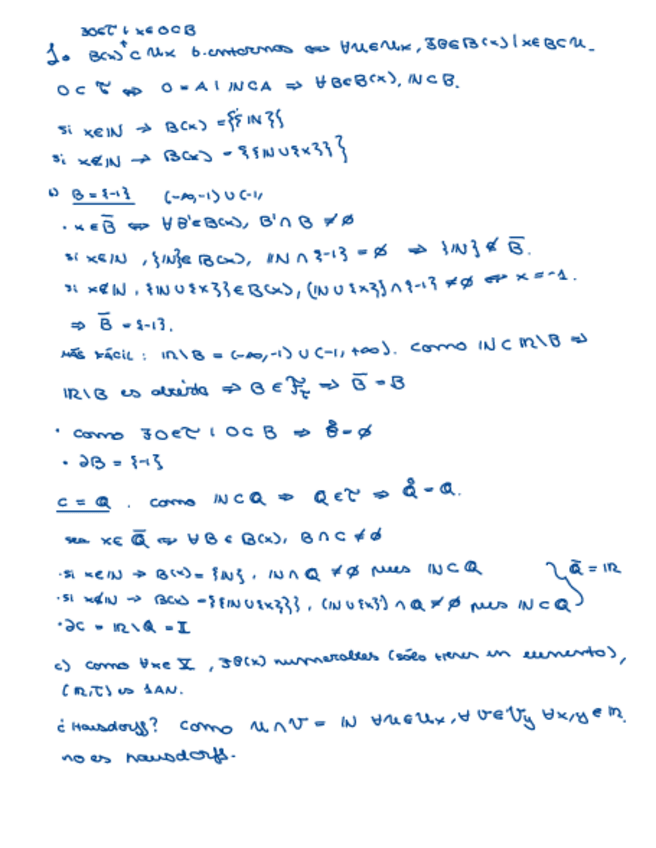 ∃O∈τ | x∈O⊂B
1. B(x) ⊂ Ux b. entornos ⇔ ∀U∈Ux, ∃B∈B(x) | x∈B⊂U.
O ⊂ τ ⇔ O = A | ℕ⊂A ⇒ ∀B∈B(x), ℕ⊂B.
si x∈ℕ → B(x) = {{ℕ}}
si x∉ℕ → B(x) = {{ℕ∪{x}}}
b) B = {-1} (-∞,-1) ∪ (-1,
· x∈B̅ ⇔ ∀B'∈B(x), B'∩B ≠ ∅
si x∈ℕ, {ℕ}∈B(x), ℕ∩{-1} = ∅ ⇒ {ℕ} ∉ B̅.
si x∉ℕ, {ℕ∪{x}}∈B(x), (ℕ∪{x})∩{-1} ≠ ∅ ⇔ x = -1.
⇒ B̅ = {-1}.
MÁS FÁCIL: ℝ\B = (-∞,-1) ∪ (-1,+∞). Como ℕ⊂ℝ\B ⇒
ℝ\B es abierto ⇒ B∈F_τ ⇒ B̅ = B
· Como ∃O∈τ | O⊂B ⇒ B̊ = ∅
· ∂B = {-1}
C = ℚ. Como ℕ⊂ℚ ⇒ ℚ∈τ ⇒ ℚ̊ = ℚ.
sea x∈ℚ̅ ⇔ ∀B∈B(x), B∩C ≠ ∅
· si x∈ℕ → B(x) = {ℕ}, ℕ∩ℚ ≠ ∅ pues ℕ⊂ℚ } ℚ̅ = ℝ
· si x∉ℕ → B(x) = {{ℕ∪{x}}}, (ℕ∪{x})∩ℚ ≠ ∅ pues ℕ⊂ℚ
· ∂C = ℝ\ℚ = 𝕀
c) Como ∀x∈X, ∃B(x) numerables (sólo tienen un elemento),
(ℝ,τ) es 1AN.
¿Hausdorff? Como U∩V = ℕ ∀U∈Ux, ∀V∈Vy ∀x,y∈ℝ.
no es hausdorff.